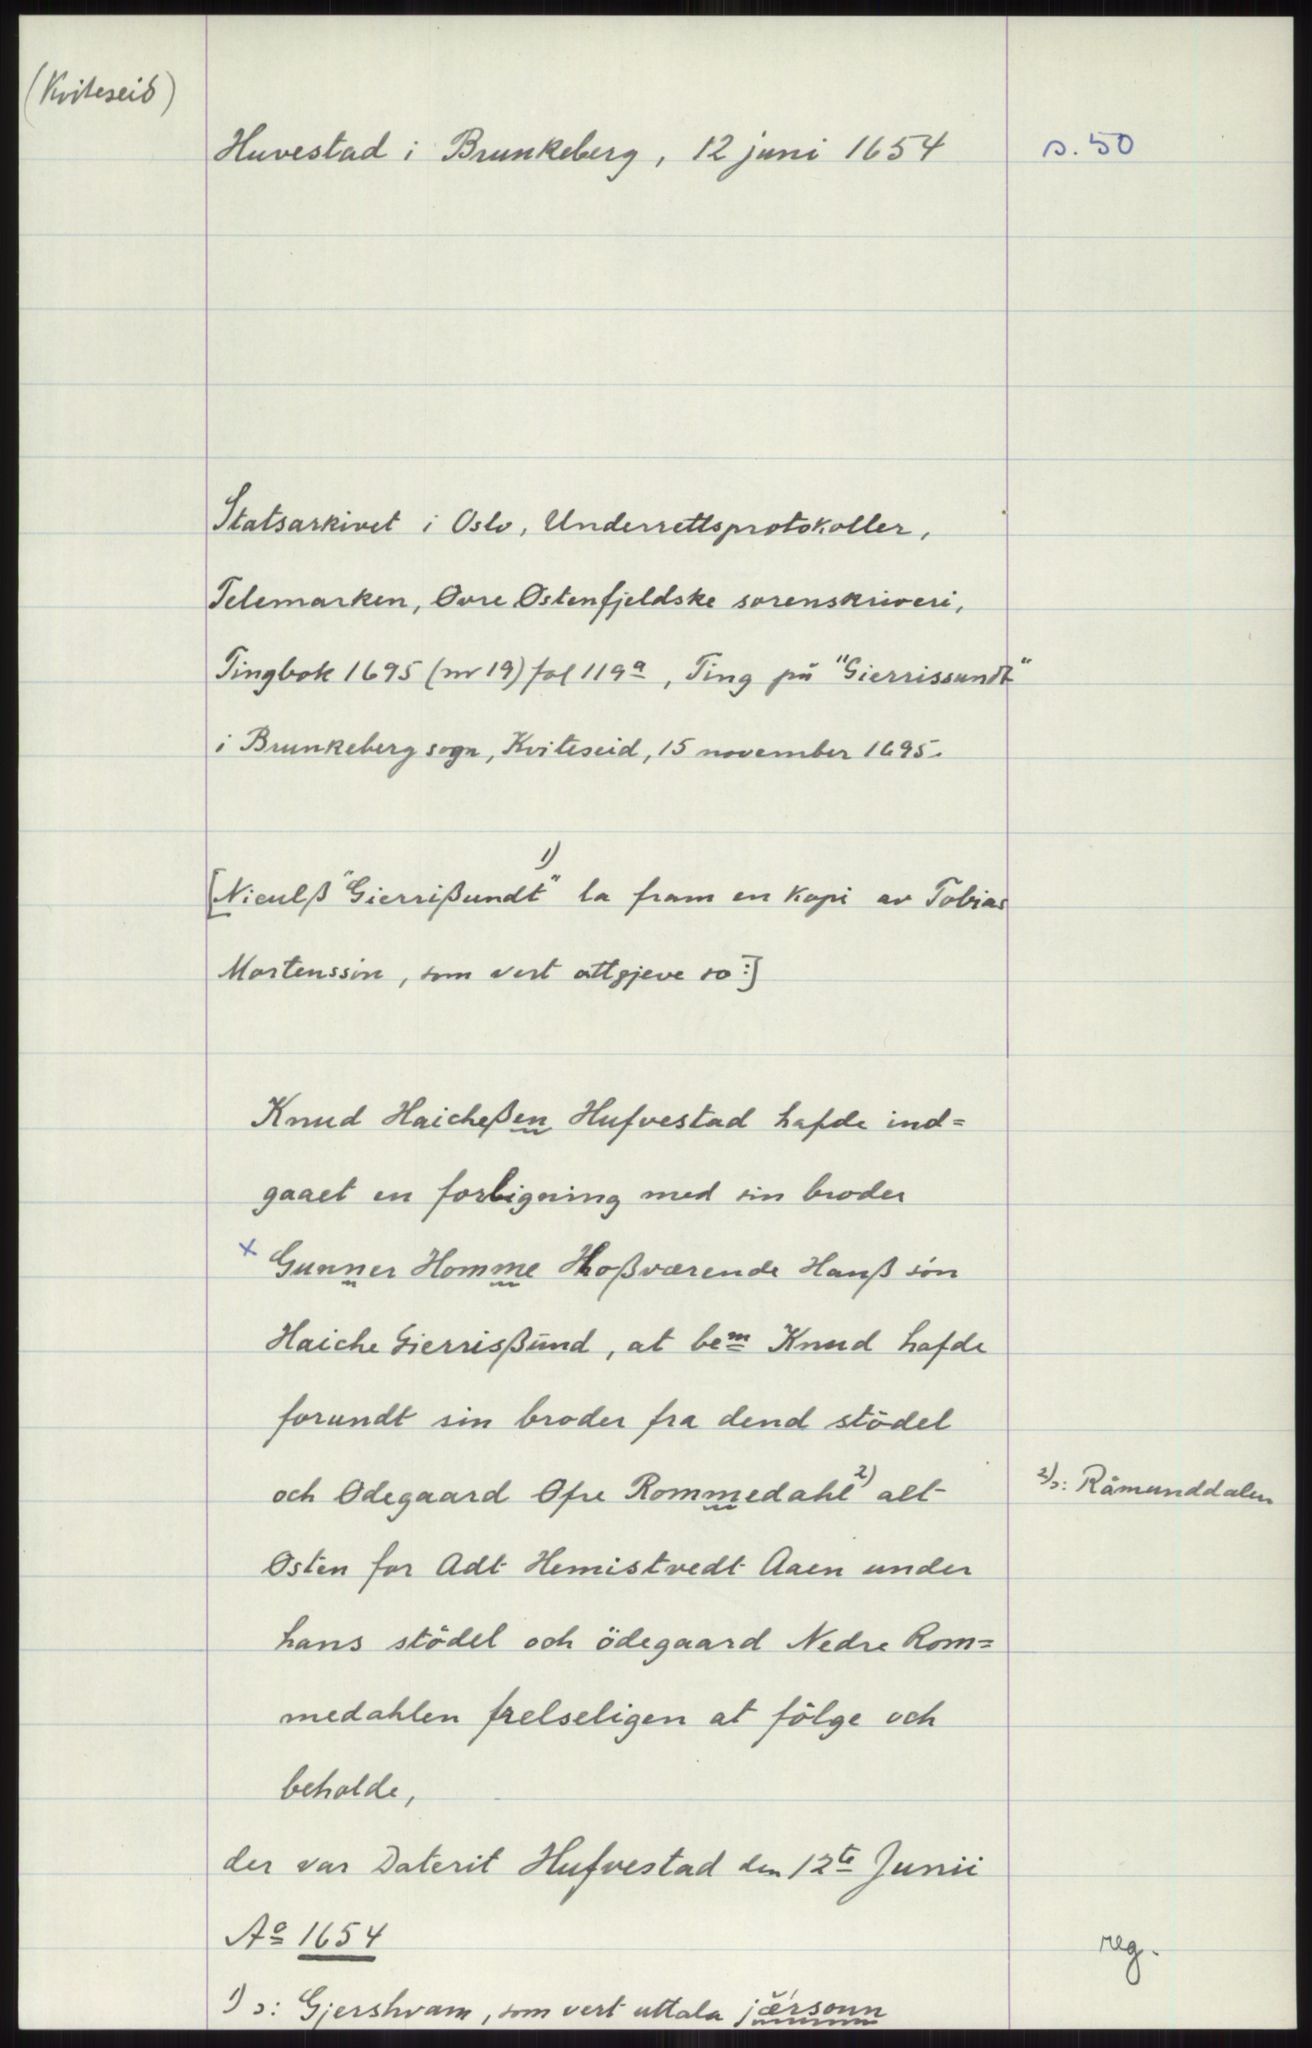 (Kviteseid)
Huvestad i Brunkeberg, 12 juni 1654
s. 50
Statsarkivet i Oslo, Underrettsprotokoller,
Telemarken, Øvre Østenfjeldske sorenskriveri,
Tingbok 1695 (nr 19) fol 119a, Ting på "Gierrissundt"
i Brunkeberg sogn, Kviteseid, 15 november 1695.
[Niculß "Gierrißundt" 1) la fram en kopi av Tobias
Mortenssøn, som vert attgjeve so:]
Knud Haicheßen Hufvestad hafde ind=
gaaet en forligning med sin broder
x Gunner Homme Hoßværende Hanß són
Haiche Gierrisßund, at bem Knud hafde
forundt sin broder fra dend stödel
och Ödegaard Ofre Rommedahl 2) alt
Østen for Adt Hemistvedt Aaen under
2) ɔ: Råmunddalen
hans stödel och ödegaard Nedre Rom=
medahlen frelseligen at fölge och
beholde,
der var Daterit Hufvestad den 12te Junii
Ao 1654
reg.
1) ɔ: Gjershvam, som vert uttala jǽrsonn